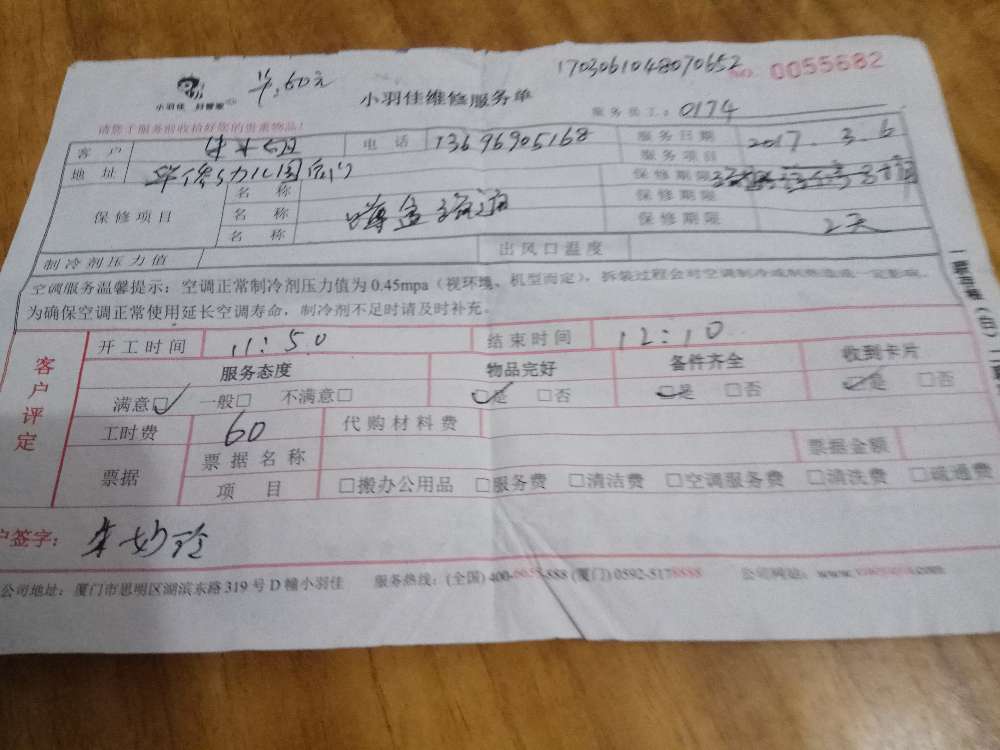 小羽佳 好管家
60元
小羽佳维修服务单
1703061048070652
NO. 0055682
服务员工: 0174
请您于服务前收拾好您的贵重物品!
客户
电话 13696905168 服务日期 2017.3.6
地址 服务项目
保修项目 名称 保修期限
名称 保修期限
名称 保修期限 2天
制冷剂压力值 出风口温度
空调服务温馨提示: 空调正常制冷剂压力值为 0.45mpa (视环境、机型而定), 拆装过程会对空调制冷或制热造成一定影响,
为确保空调正常使用延长空调寿命, 制冷剂不足时请及时补充。
客户评定
开工时间 11:50 结束时间 12:10
服务态度 物品完好 备件齐全 收到卡片
满意☑ 一般□ 不满意□ ☑是 □否 ☑是 □否 ☑是 □否
工时费 60 代购材料费
票据 票据名称 票据金额
项目 □搬办公用品 □服务费 □清洁费 □空调服务费 □清洗费 □疏通费
户签字: 朱妙玲
公司地址: 厦门市思明区湖滨东路 319 号 D 幢小羽佳 服务热线: (全国) 400- (厦门) 0592-5178888 公司网址: www.